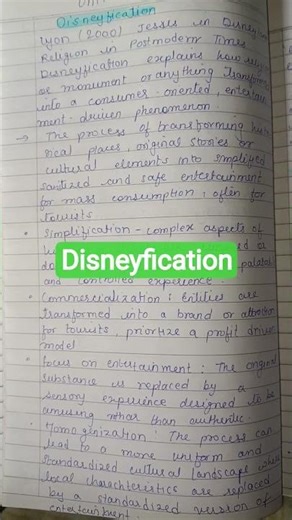 Disneyfication
Lyon (2000) Jesus in Disney
Religion in Postmodern Times
Disneyfication explains how
or monument or anything transform
into a consumer-oriented, entertain
ment-driven phenomenon.
→ The process of transforming
sical places, original stories or
cultural elements into simplified
sanitized and safe entertainment
for mass consumption, often for
tourists
• Simplification - complex aspects of
Disneyfication
and controlled experience
• Commercialization: Entities are
transformed into a brand or attraction
for tourists, prioritize a profit driven
model
• Focus on entertainment: The original
substance is replaced by a
sensory experience designed to be
amusing rather than authentic.
• Homogenization: The process can
lead to a more uniform and
standardized cultural landscape where
local characteristics are replaced
by a standardized version of
entertainment.